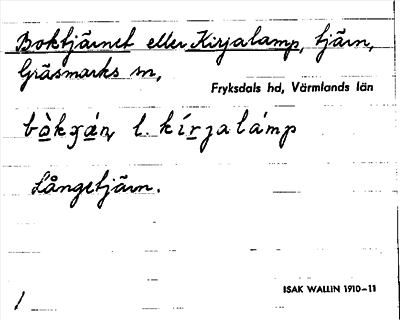 Boktjärnet eller Kirjalamp, tjärn,
Gräsmarks sn,
Fryksdals hd, Värmlands län
l. kírjalámp
Långetjärn.
ISAK WALLIN 1910–11
1